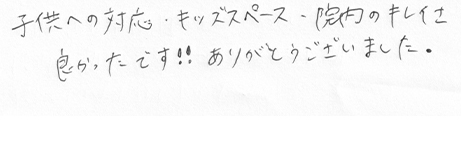 子供への対応・キッズスペース・院内のキレイさ
良かったです!! ありがとうございました。